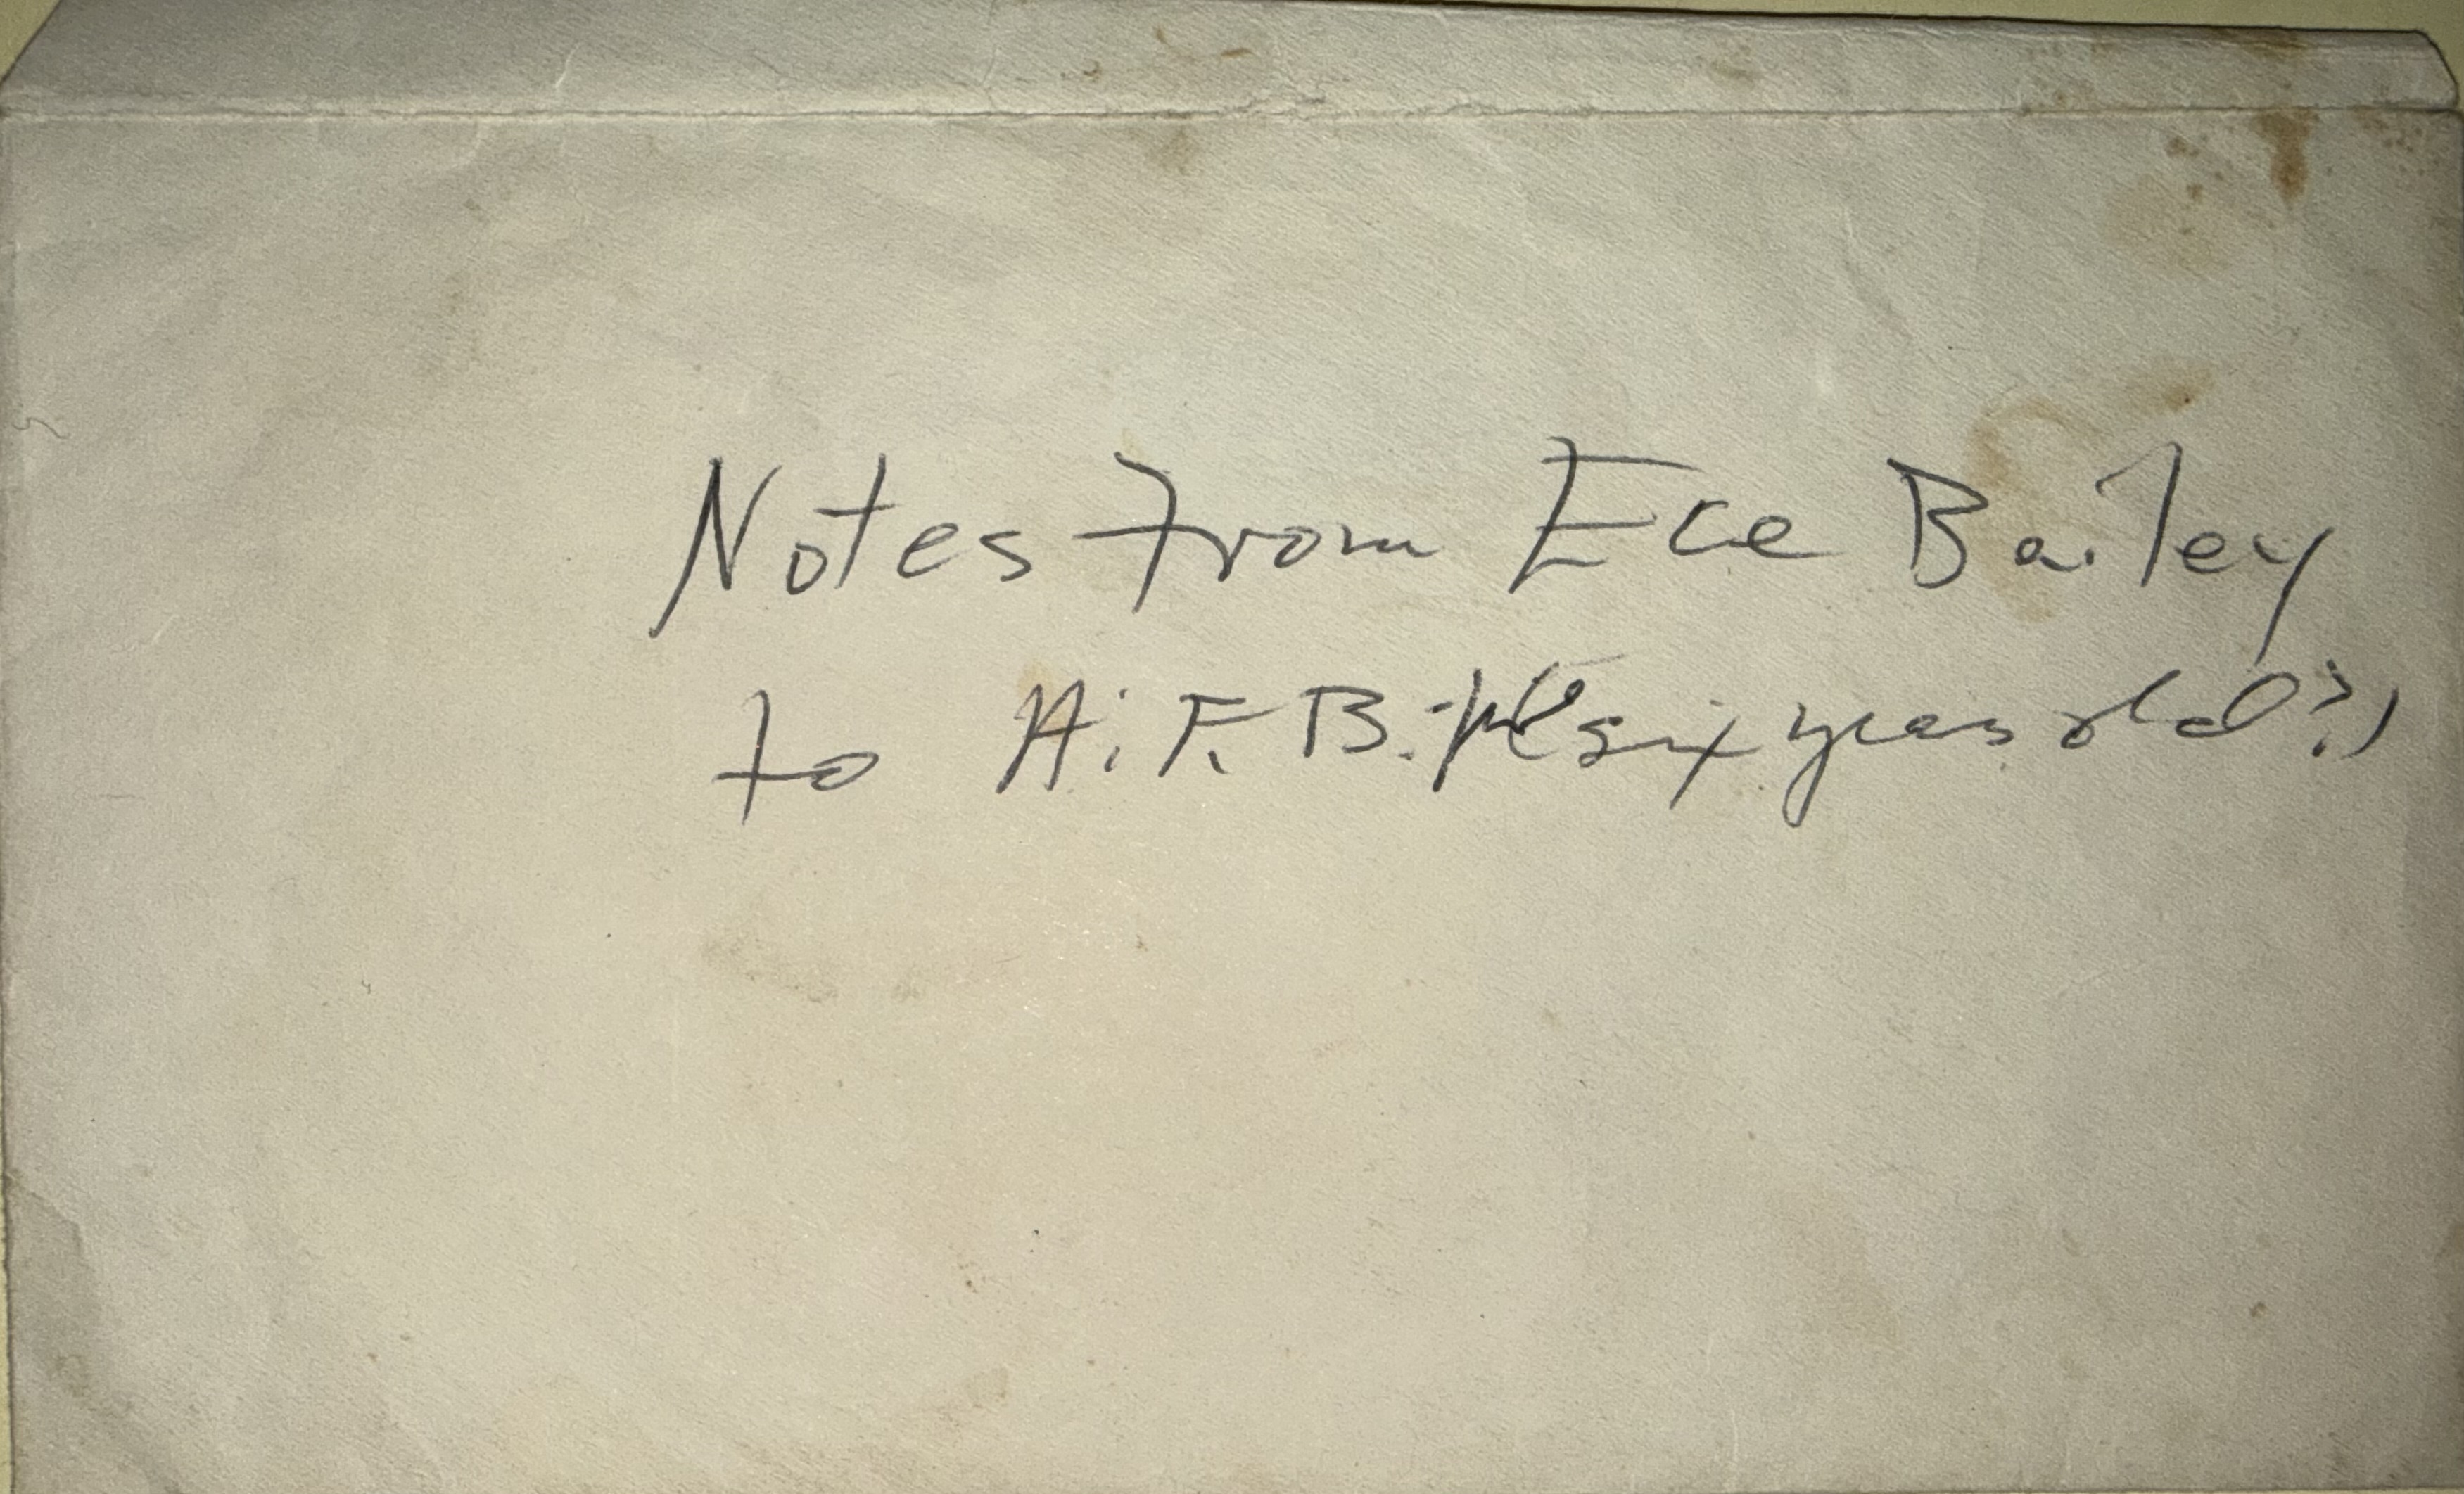 Notes from Ece Bailey
to A. F. B. six years old?)